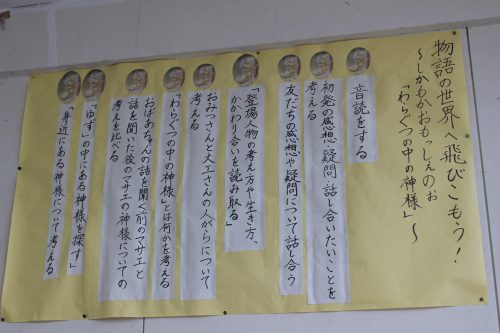 物語の世界へ飛びこもう！
～しかもかおもっしぇのぉ
「わらぐつの中の神様」～
音読をする
初発の感想、疑問、話し合いたいことを
考える
友だちの感想や疑問について話し合う
「登場人物の考え方や生き方、
かかわり合いを読み取る」
おみつさんと大工さんの人がらについて
考える
「わらぐつの中の神様」とは何かを考える
おばあちゃんの話を聞く前のマサエと
話を聞いた後のマサエの神様についての
考えを比べる
「ゆず」の中にある神様を探す」
「身近にある神様について考える